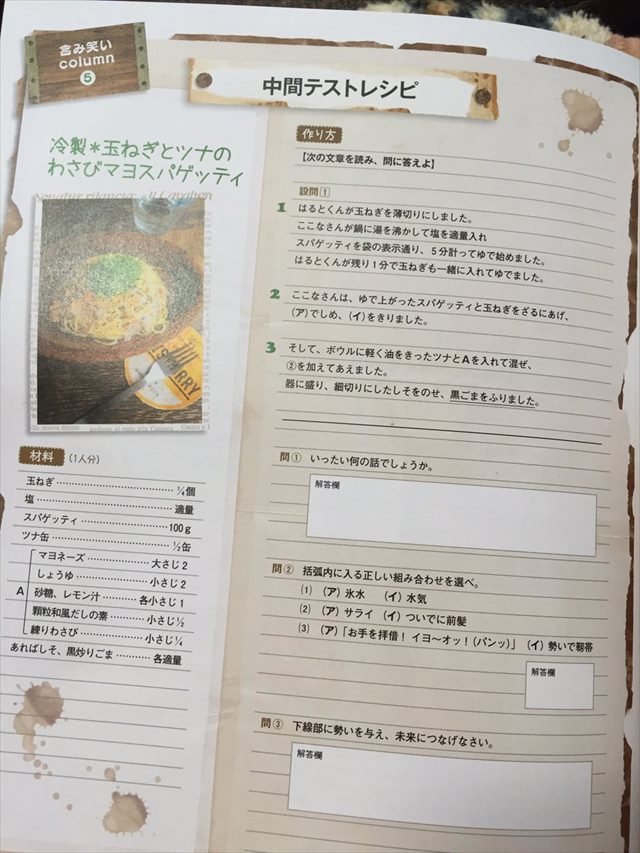 含み笑い
column
5
中間テストレシピ
冷製*玉ねぎとツナの
わさびマヨスパゲッティ
材料 (1人分)
玉ねぎ……¼個
塩……適量
スパゲッティ……100g
ツナ缶……½缶
A
マヨネーズ……大さじ2
しょうゆ……小さじ2
砂糖、レモン汁……各小さじ1
顆粒和風だしの素……小さじ½
練りわさび……小さじ¼
あればしそ、黒炒りごま……各適量
作り方
【次の文章を読み、問に答えよ】
設問1
1 はるとくんが玉ねぎを薄切りにしました。
ここなさんが鍋に湯を沸かして塩を適量入れ
スパゲッティを袋の表示通り、5分計ってゆで始めました。
はるとくんが残り1分で玉ねぎも一緒に入れてゆでました。
2 ここなさんは、ゆで上がったスパゲッティと玉ねぎをざるにあげ、
(ア)でしめ、(イ)をきりました。
3 そして、ボウルに軽く油をきったツナとAを入れて混ぜ、
②を加えてあえました。
器に盛り、細切りにしたしそをのせ、黒ごまをふりました。
問① いったい何の話でしょうか。
解答欄
問② 括弧内に入る正しい組み合わせを選べ。
(1) (ア) 氷水 (イ) 水気
(2) (ア) サライ (イ) ついでに前髪
(3) (ア)「お手を拝借! イヨ〜オッ! (パンッ)」 (イ) 勢いで靱帯
解答欄
問③ 下線部に勢いを与え、未来につなげなさい。
解答欄